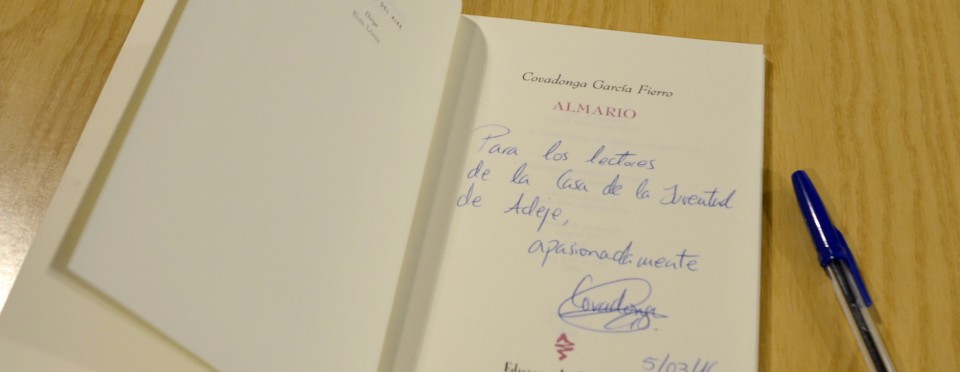 DEL AIRE
Covadonga García Fierro
ALMARIO
Para los lectores
de la Casa de la Juventud
de Adeje,
apasionadamente
Covadonga